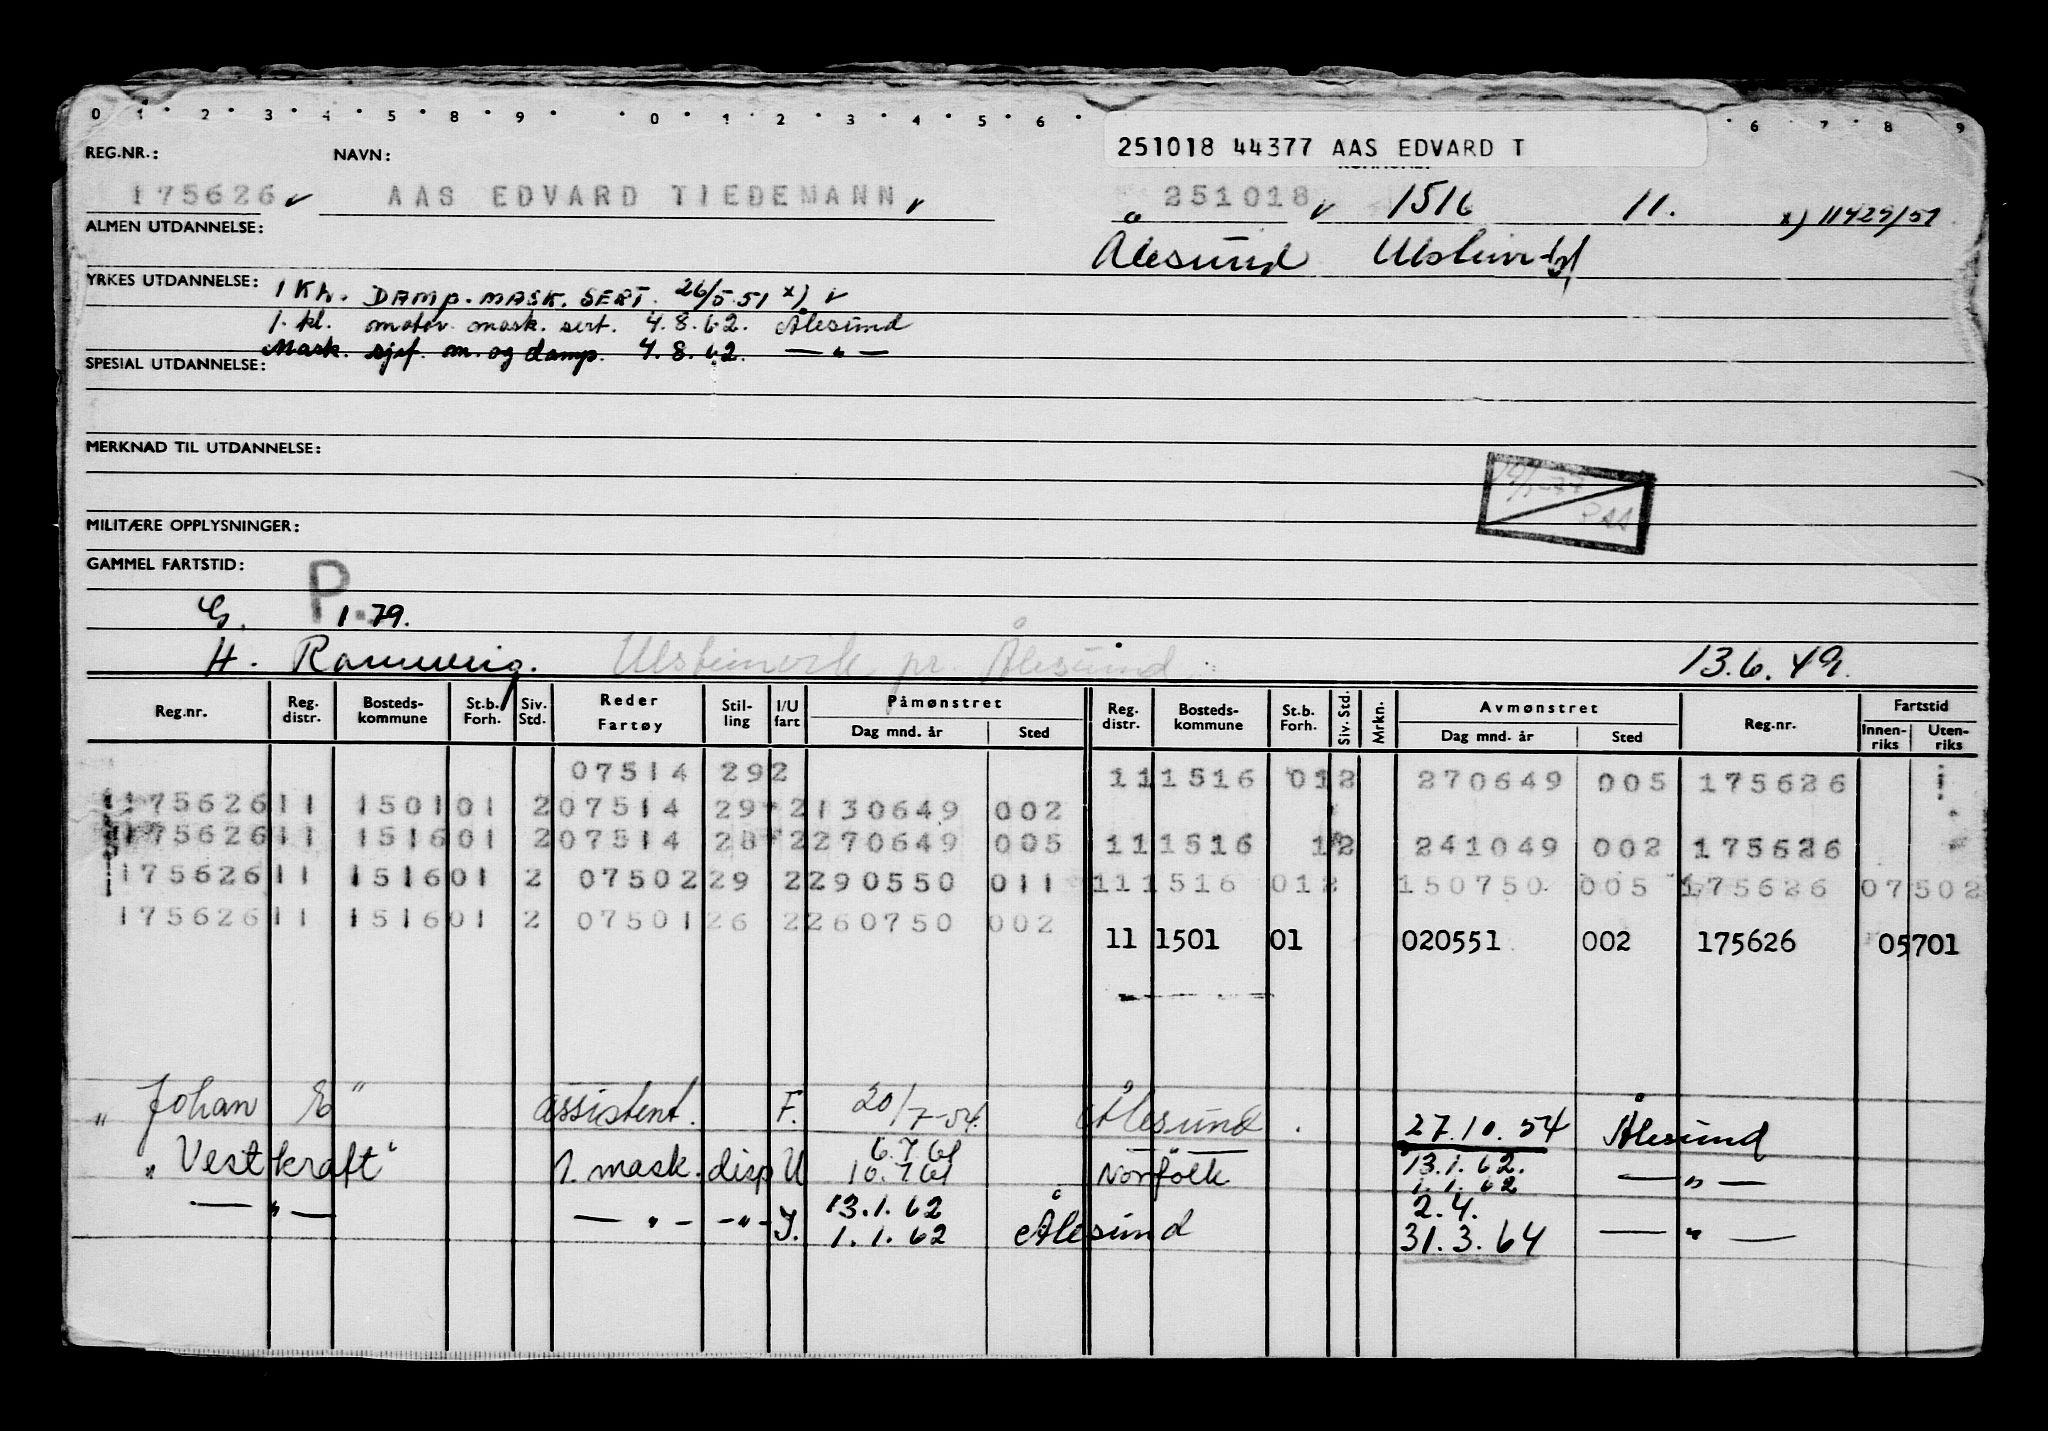 0 1 2 3 4 5 8 9 0 1 2 3 4 5 6 6 7 8 9
251018 44377 AAS EDVARD T
REG.NR.: NAVN:
175626 AAS EDVARD TIEDEMANN 251018 1516 11. x) 11429/51
ALMEN UTDANNELSE: Ålesund
YRKES UTDANNELSE: 1 Kl. DAMP. MASK. SERT. 26/5.51 x)
1. kl. motor. mask. sert. 4.8.62. Ålesund
Mask. sjef. m. og damp. 4.8.62. — " —
SPESIAL UTDANNELSE:
MERKNAD TIL UTDANNELSE:
MILITÆRE OPPLYSNINGER:
GAMMEL FARTSTID: P
G. 1.79.
H. Ulsteinvik pr. Ålesund 13.6.49.
Reg.nr. Reg. distr. Bosteds-kommune St.b. Forh. Siv. Std. Reder Fartøy Stil-ling I/U fart Påmønstret Dag mnd. år Sted Reg. distr. Bosteds-kommune St.b. Forh. Siv. Std. Mrkn. Avmønstret Dag mnd. år Sted Reg.nr. Fartstid Innen-riks Uten-riks
07514 292 11 1516 01 2 270649 005 175626
175626 11 1501 01 2 07514 29 2 130649 002
175626 11 1516 01 2 07514 28 2 270649 005 11 1516 1 2 241049 002 175626
175626 11 1516 01 2 07502 29 2 290550 011 11 1516 01 2 150750 005 175626 07502
175626 11 1516 01 2 07501 26 2 260750 002
11 1501 01 020551 002 175626 05701
" Johan E " assistent. F. 20/7-54. Ålesund. 27.10.54 Ålesund
" Vestkraft " 1. mask. disp U 6.7.61 10.7.61 Norfolk 13.1.62. 1.1.62 — " —
— " — — " — - " - I. 13.1.62 1.1.62 Ålesund 2.4. 31.3.64 — " —